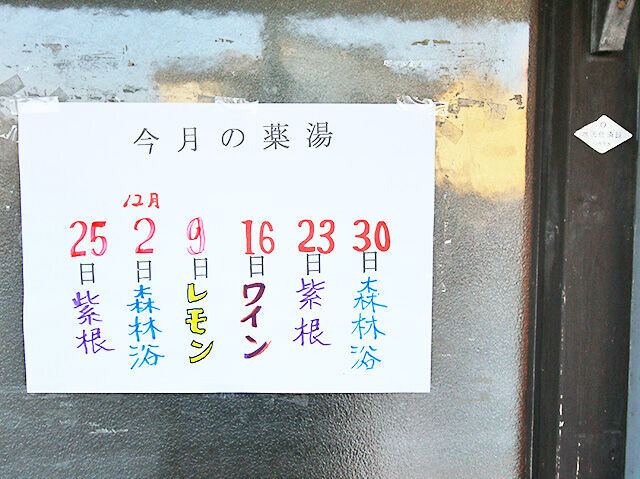 今月の薬湯
12月
25日紫根
2日森林浴
9日レモン
16日ワイン
23日紫根
30日森林浴